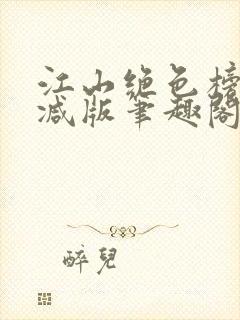 江山绝色榜
减版笔趣阁
醉兒